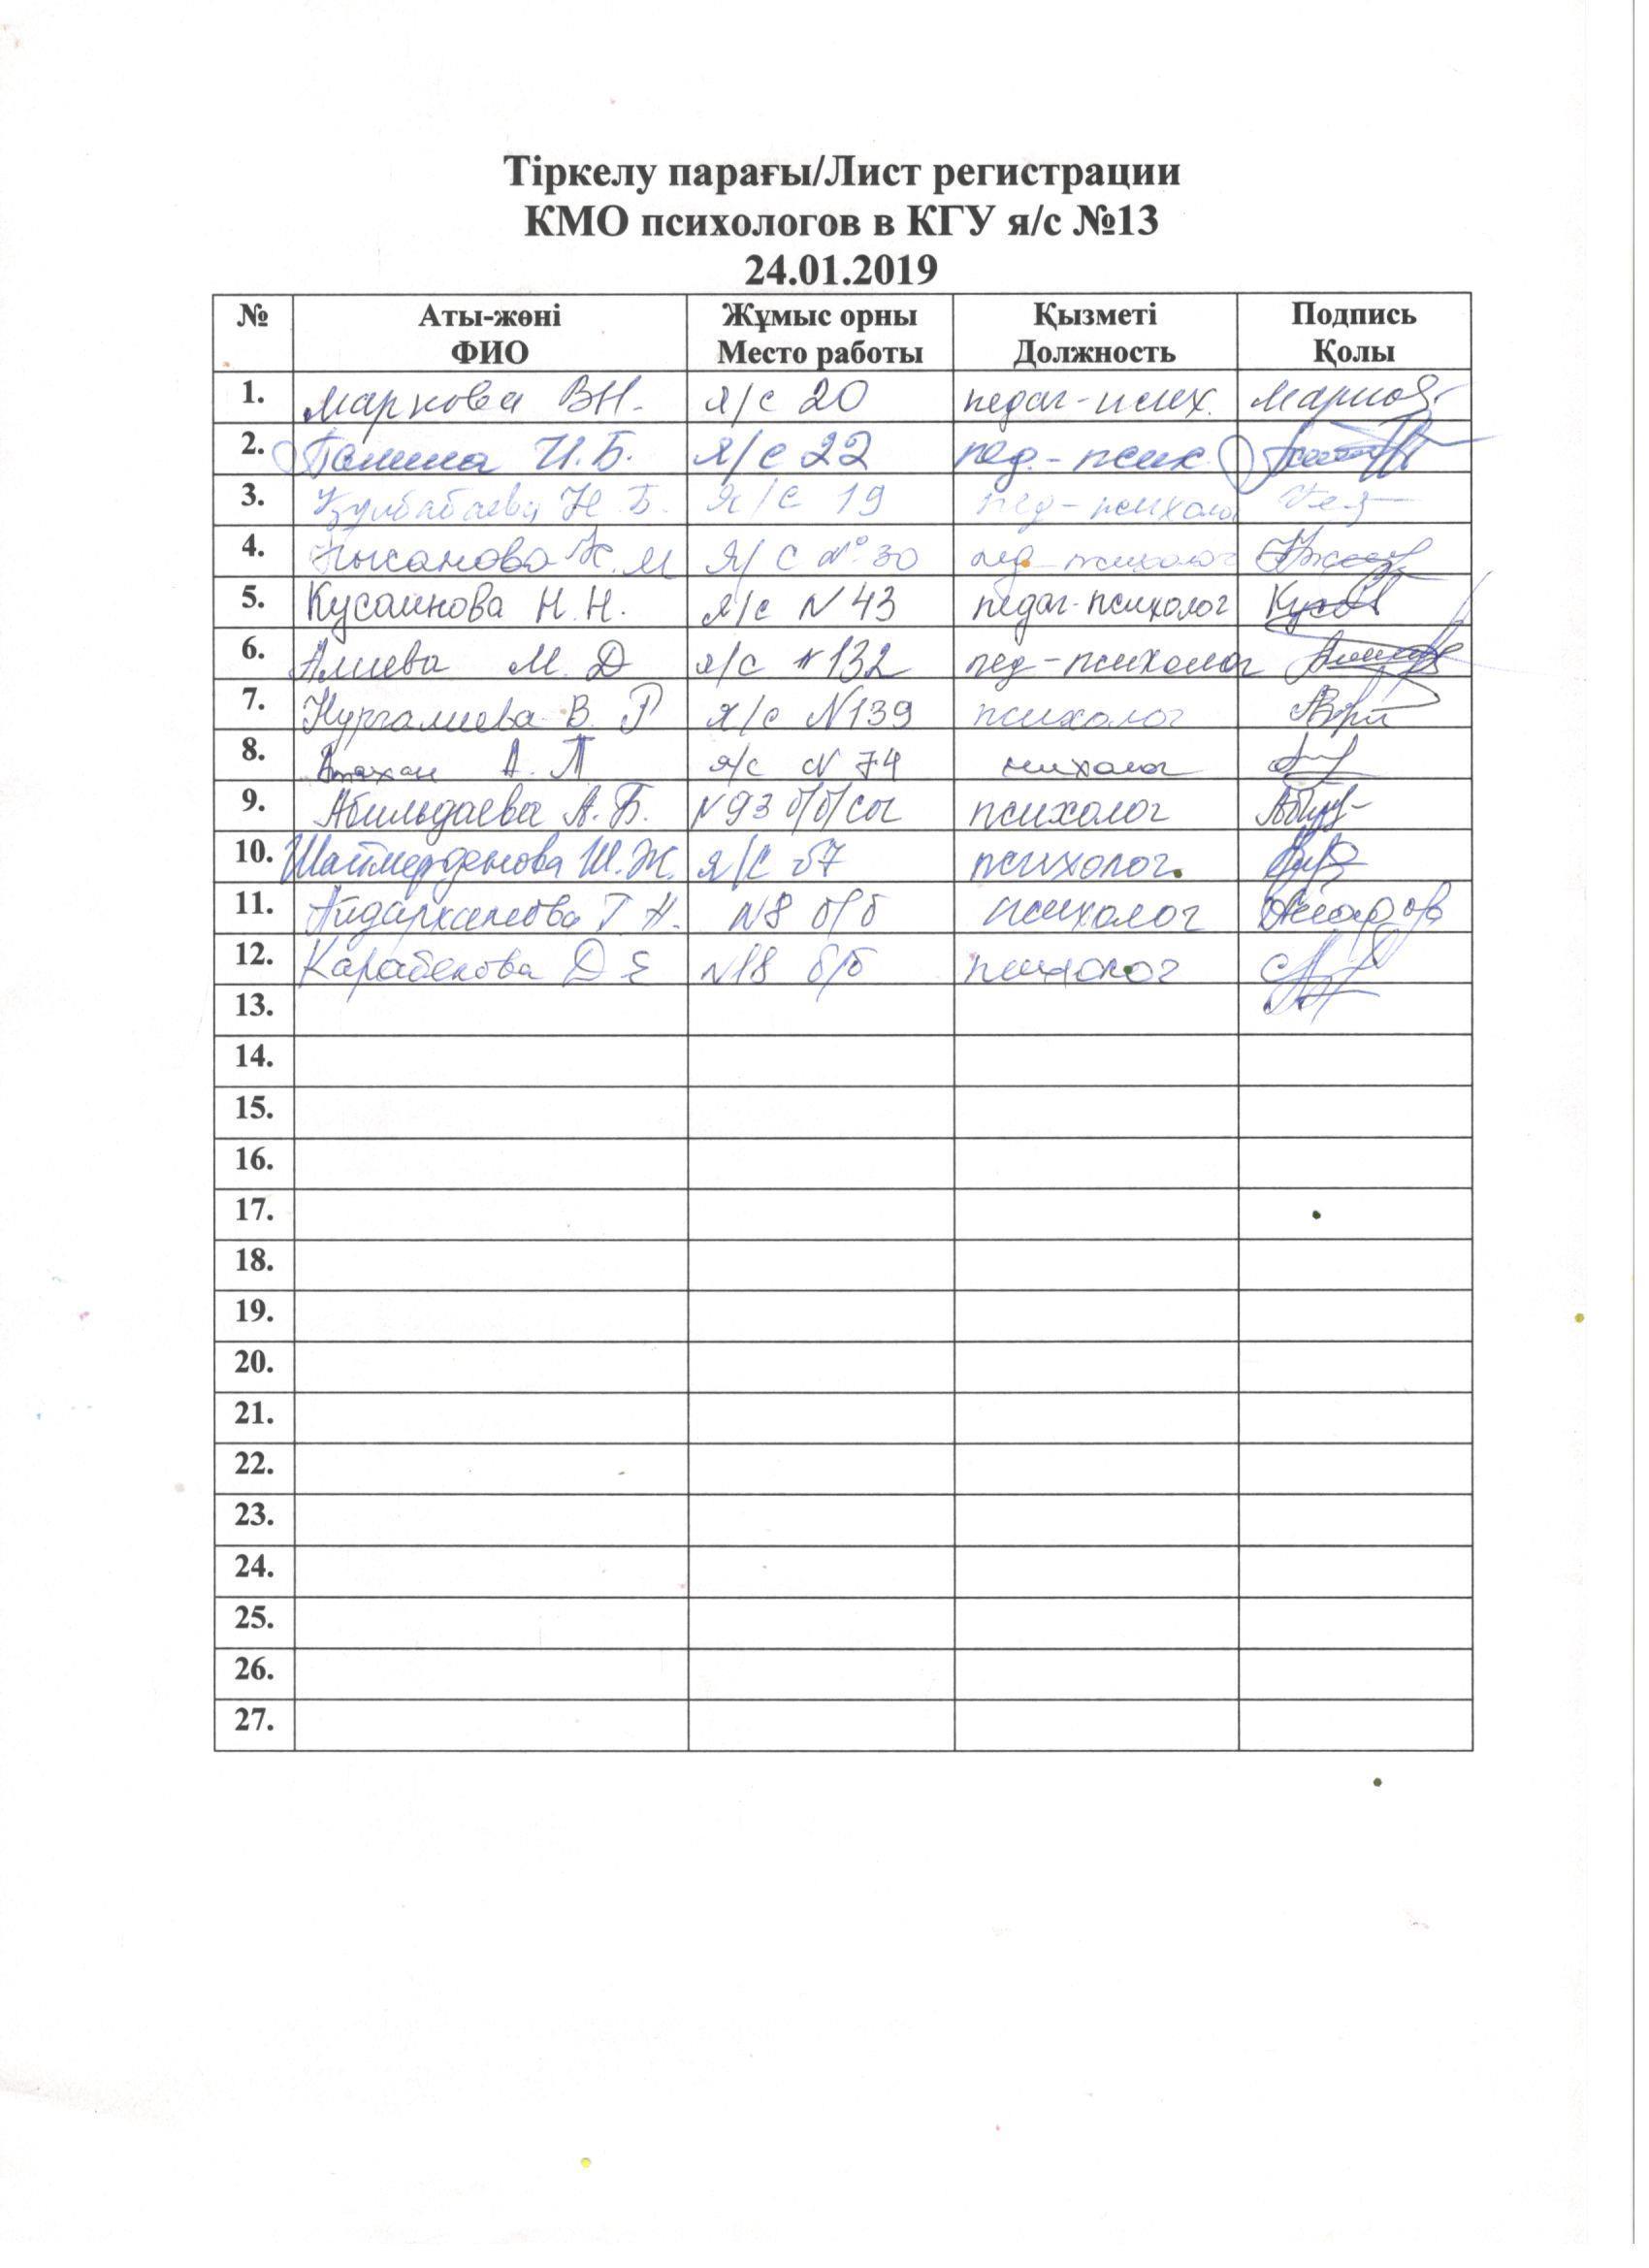 Тіркелу парағы/Лист регистрации
КМО психологов в КГУ я/с №13
24.01.2019
№ Аты-жөні Жұмыс орны Қызметі Подпись
ФИО Место работы Должность Қолы
1. Маркова В.Н. я/с 20 педаг-псих.
2. Галина И.Б. я/с 22 пед.-псих.
3. Н.Б. я/с 19 пед-психоло
4. Нысанова К.М я/с №30 пед-психолог
5. Кусаинова Н.Н. я/с N 43 педаг-психолог
6. Алиева М.Д я/с N132 пед-психолог
7. Нургалиева В.Р я/с N139 психолог
8. Атахан А. я/с N 74 психолог
9. Абильдаева А.Б. N93 психолог
10. Шаймерденова Ш.Ж. я/с психолог
11. Г.Н. N8 б/б психолог
12. Карабекова Д Е N18 б/б психолог
13.
14.
15.
16.
17.
18.
19.
20.
21.
22.
23.
24.
25.
26.
27.